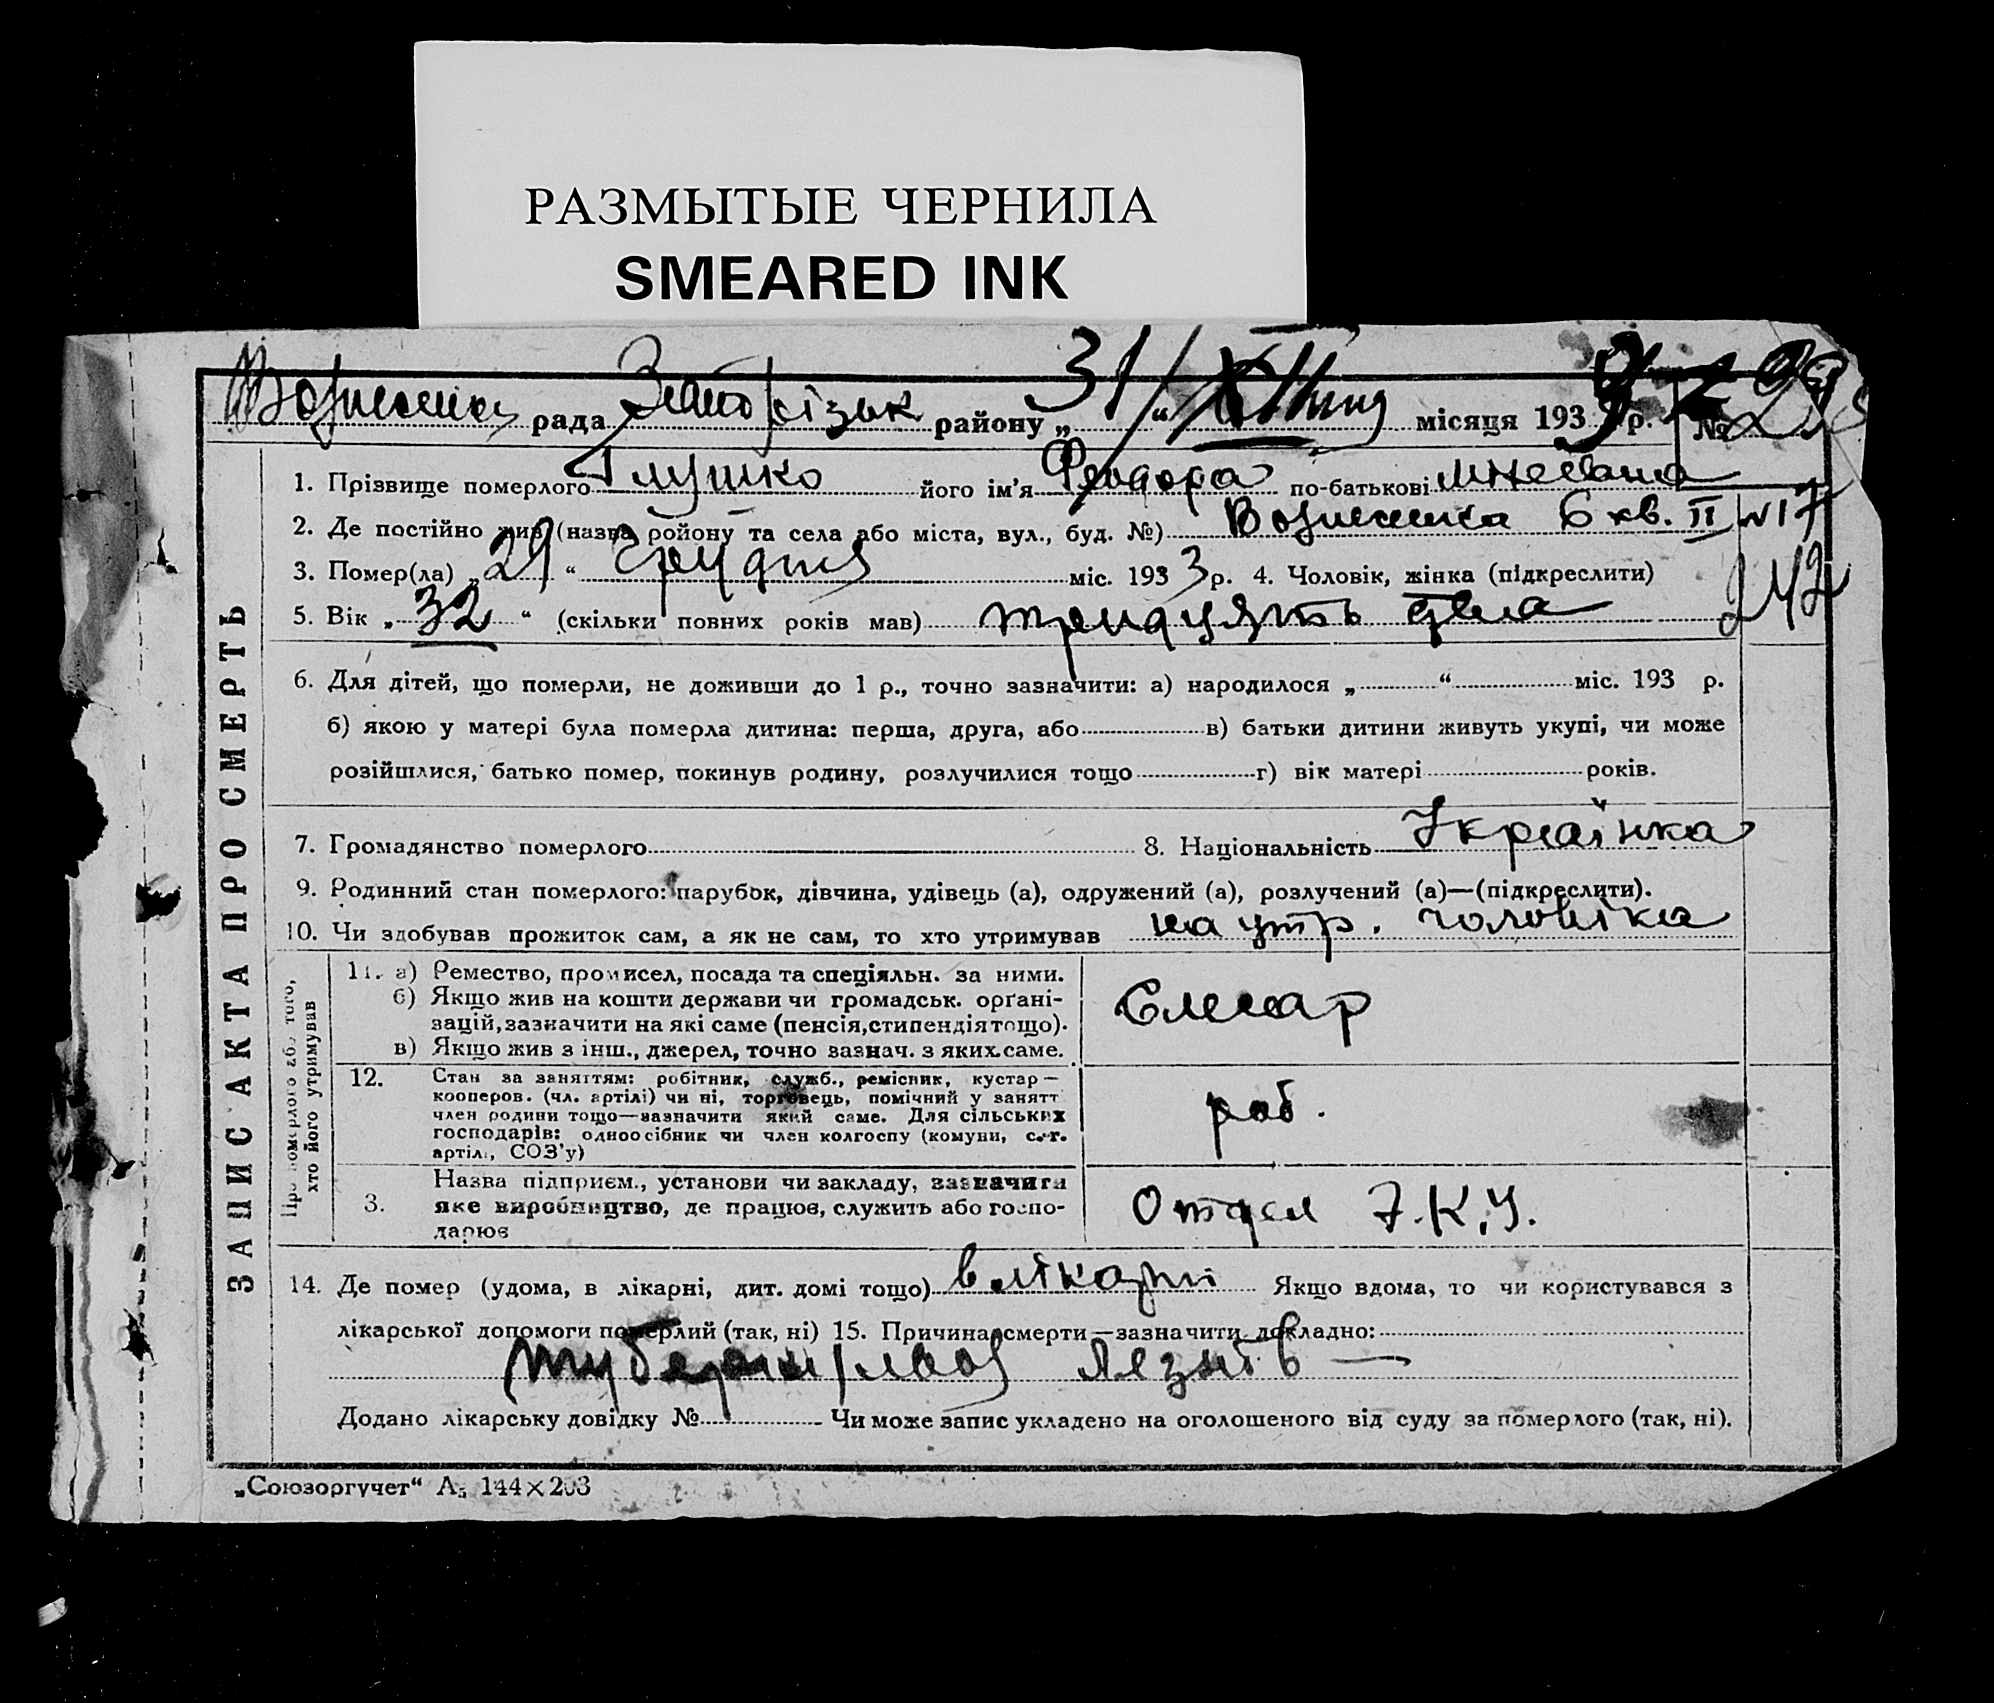 РАЗМЫТЫЕ ЧЕРНИЛА
SMEARED INK
рада района районy „31“ XII місяця 1933 р. №
1. Прізвище померлого Глушко його ім’я Феодора по-батькові
2. Де постійно жив (назва ройону та села або міста, вул., буд. №) Вознесенка 6 кв. II №17
3. Помер(ла) „29“ грудня міс. 1933 р. 4. Чоловік, жінка (підкреслити) 242
5. Вік „32“ (скільки повних років мав) тридцять два
6. Для дітей, що померли, не доживши до 1 р., точно зазначити: а) народилося „ “ міс. 193 р.
б) якою у матері була померла дитина: перша, друга, або в) батьки дитини живуть укупі, чи може
розійшлися, батько помер, покинув родину, розлучилися тощо г) вік матері років.
7. Громадянство померлого 8. Національність Українка
9. Родинний стан померлого: парубок, дівчина, удівець (а), одружений (а), розлучений (а)—(підкреслити).
10. Чи здобував прожиток сам, а як не сам, то хто утримував на утр. чоловіка
ЗАПИС АКТА ПРО СМЕРТЬ
Про померлого або того, хто його утримував
11. а) Ремество, промисел, посада та спеціяльн. за ними.
б) Якщо жив на кошти держави чи громадськ. орґані-
зацій, зазначити на які саме (пенсія, стипендія тощо).
в) Якщо жив з інш., джерел, точно зазнач. з яких саме.
Слесар
12. Стан за заняттям: робітник, служб., ремісник, кустар —
кооперов. (чл. артілі) чи ні, торговець, помічний у занятт
член родини тощо—зазначити який саме. Для сільських
господарів: одноосібник чи член колгоспу (комуни, с.-г.
артілі, СОЗ’у)
роб.
3. Назва підприєм., установи чи закладу, зазначити
яке виробництво, де працює, служить або госпо-
дарює
Отдел
14. Де помер (удома, в лікарні, дит. домі тощо) в лікарні Якщо вдома, то чи користувався з
лікарської допомоги померлий (так, ні) 15. Причина смерти—зазначити докладно:
туберкульоз
Додано лікарську довідку № Чи може запис укладено на оголошеного від суду за померлого (так, ні).
„Союзоргучет“ А5 144×203